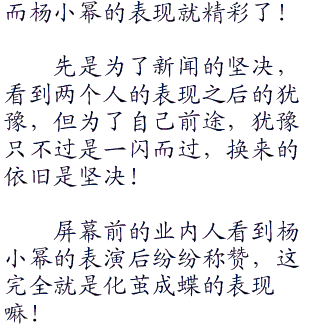 而杨小幂的表现就精彩了！
先是为了新闻的坚决，
看到两个人的表现之后的犹
豫，但为了自己前途，犹豫
只不过是一闪而过，换来的
依旧是坚决！
屏幕前的业内人看到杨
小幂的表演后纷纷称赞，这
完全就是化茧成蝶的表现
嘛！